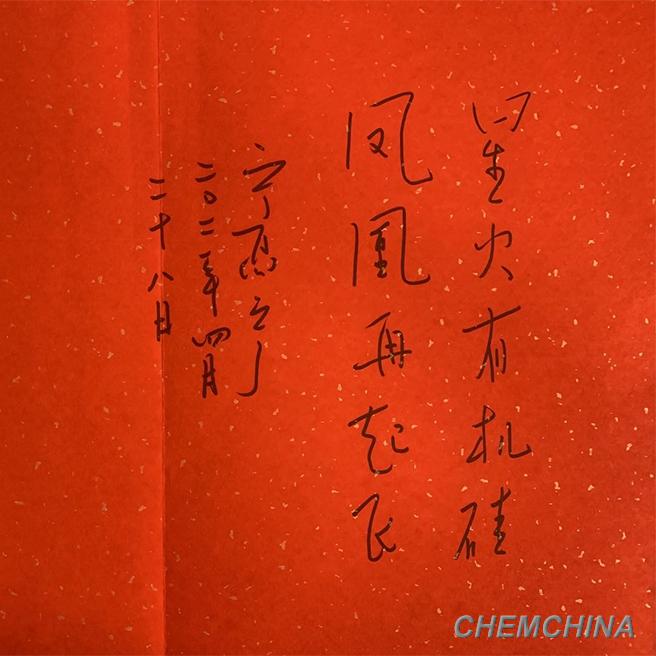 星火有机硅
凤凰再起飞
宁高宁
二〇二一年四月
二十八日
CHEMCHINA